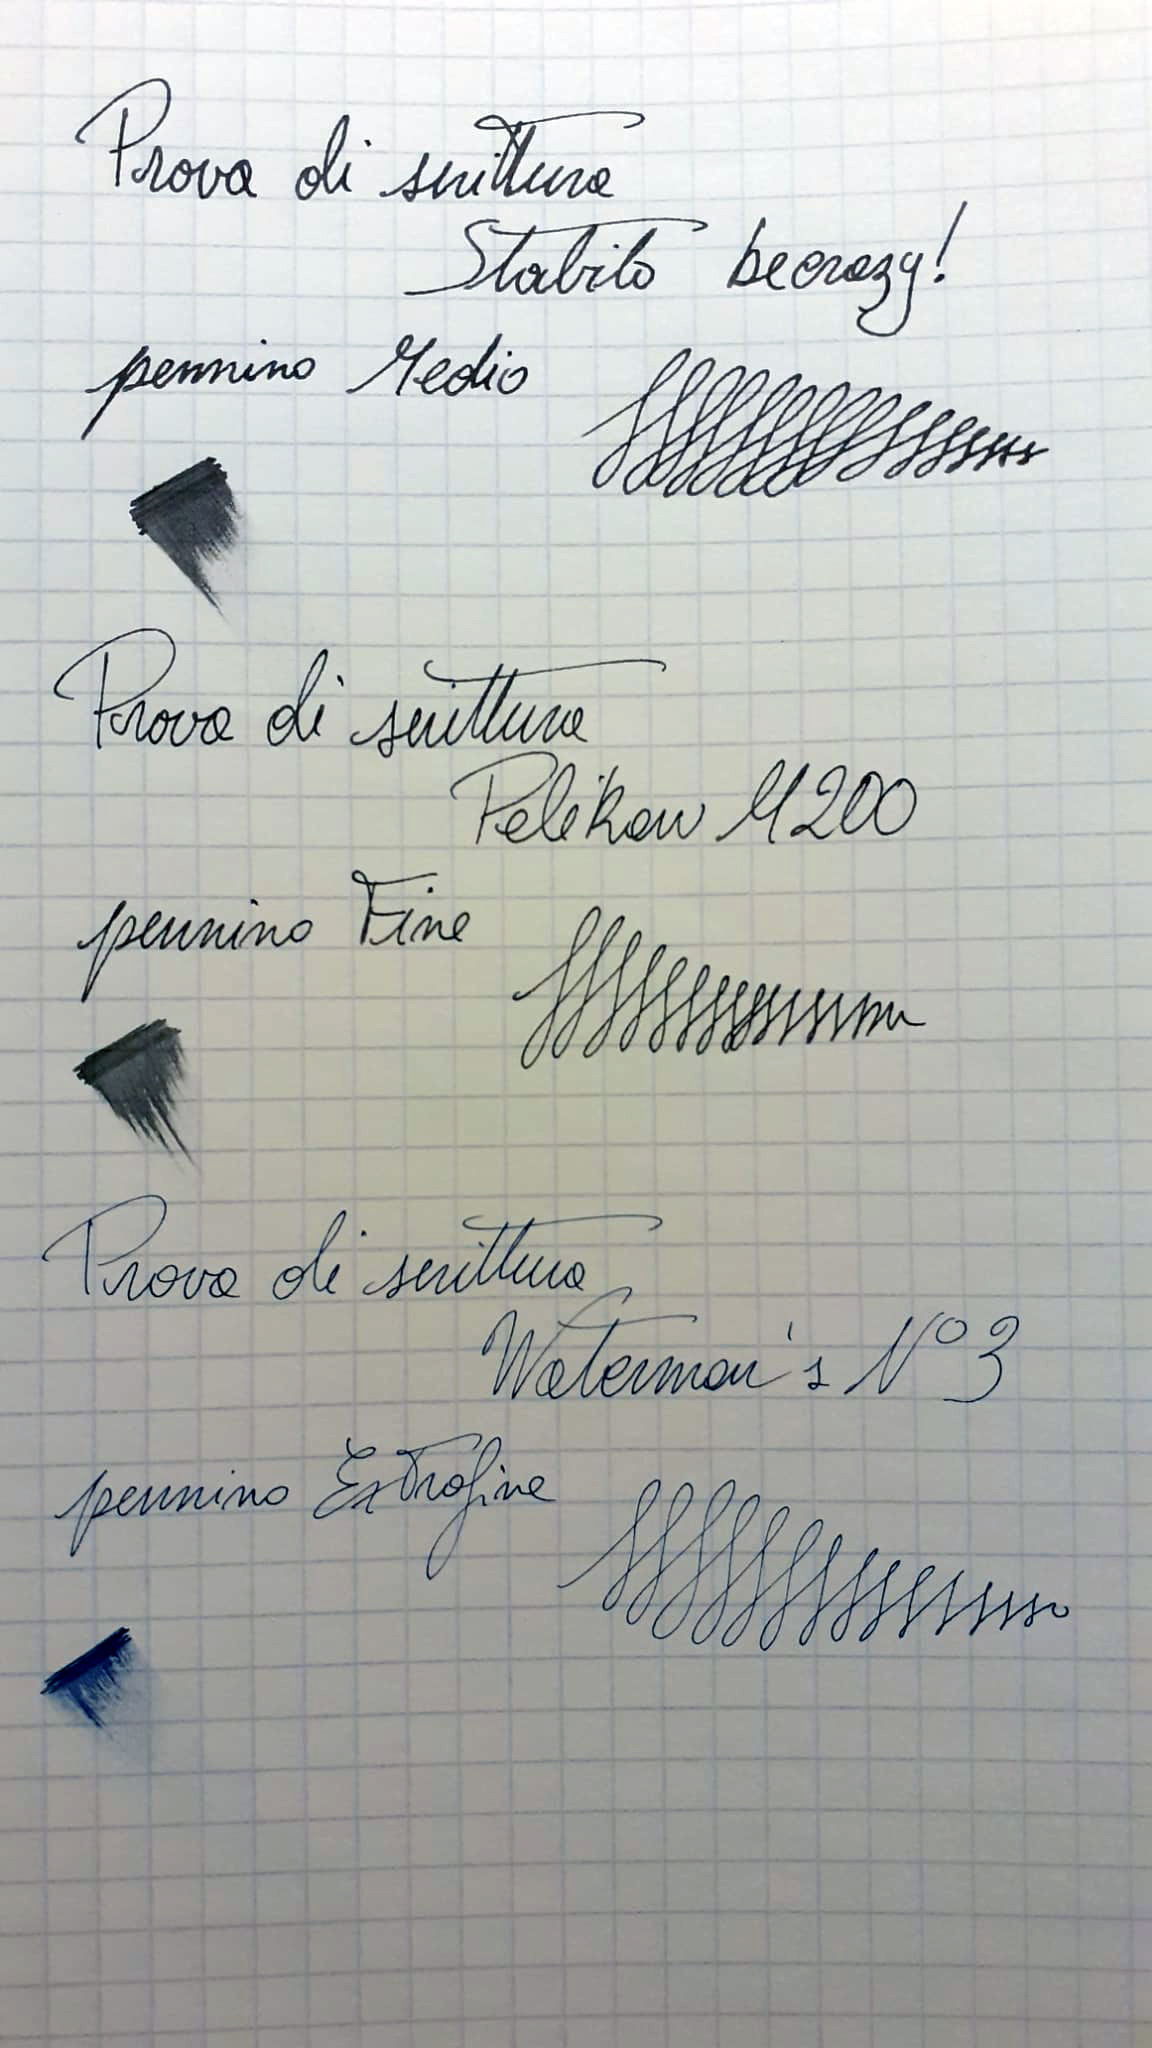 Prova di scrittura
Stabilo becrazy!
pennino Medio
Prova di scrittura
Pelikan M200
pennino Fine
Prova di scrittura
Waterman's N°3
pennino Extrafine